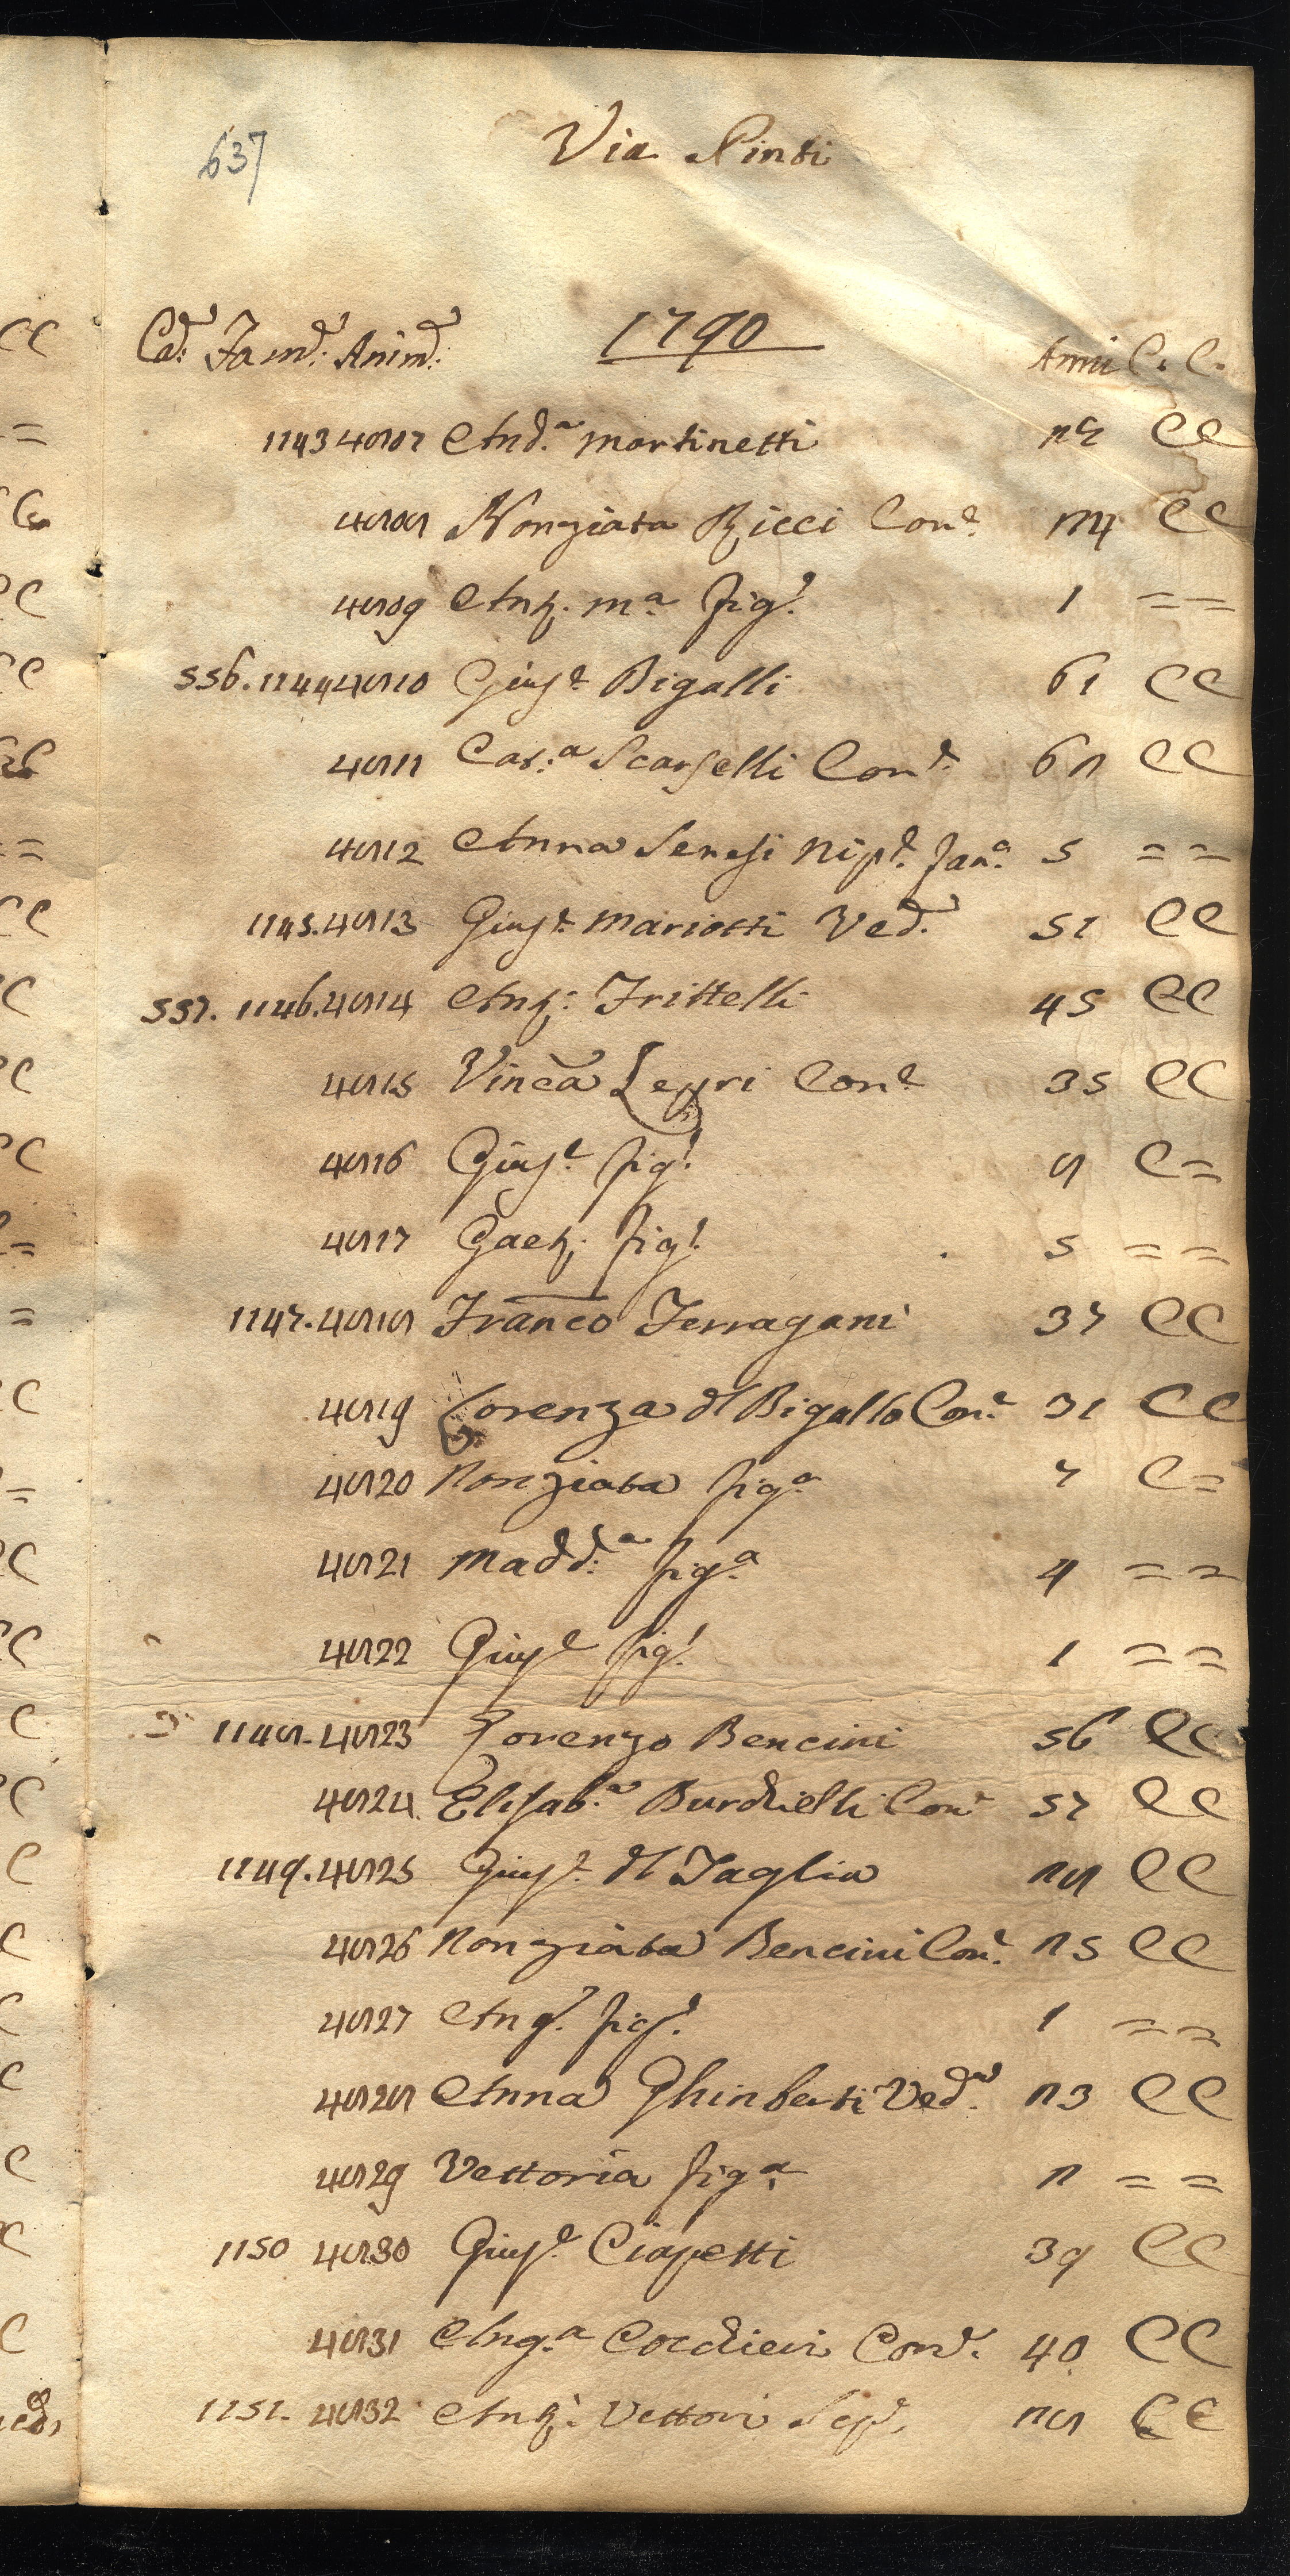 637
Via Pinti
Cas: Fam: Anim: 1790 Anni C. C.
1143 4807 And.a Martinetti 27 CC
4808 Nonziata Ricci Con.e 24 CC
4809 Ant. Ma. fig.o 1 ==
556. 1144 4810 Gius.e Bigalli 61 CC
4811 Cat.a Scarselli Con.e 62 CC
4812 Anna Senesi Nip.e 5 ==
1145. 4813 Gius.e Mariotti Ved. 51 CC
557. 1146. 4814 Ant. Frittelli 45 CC
4815 Vinca Lepri Con.e 35 CC
4816 Gius.e fig.o 8 C=
4817 Gaet. fig.o 5 ==
1147. 4818 Franco Ferragani 37 CC
4819 Lorenza dl Bigallo Con.e 31 CC
4820 Nonziata fig.a 7 C=
4821 Madd.a fig.a 4 ==
4822 Gius.e fig.o 1 ==
1148. 4823 Lorenzo Bencini 56 CC
4824 Elisab.a Burchielli Con.e 57 CC
1149. 4825 Gius.e dl Taglia 28 CC
4826 Nonziata Bencini Con.e 25 CC
4827 Ang. fig.o 1 ==
4828 Anna Ghinberti Ved.a 23 CC
4829 Vettoria fig.a 2 ==
1150 4830 Gius.e Ciapetti 39 CC
4831 Ang.a Cocchieri Con.e 40 CC
1151. 4832 Ant. Vettori 28 CC